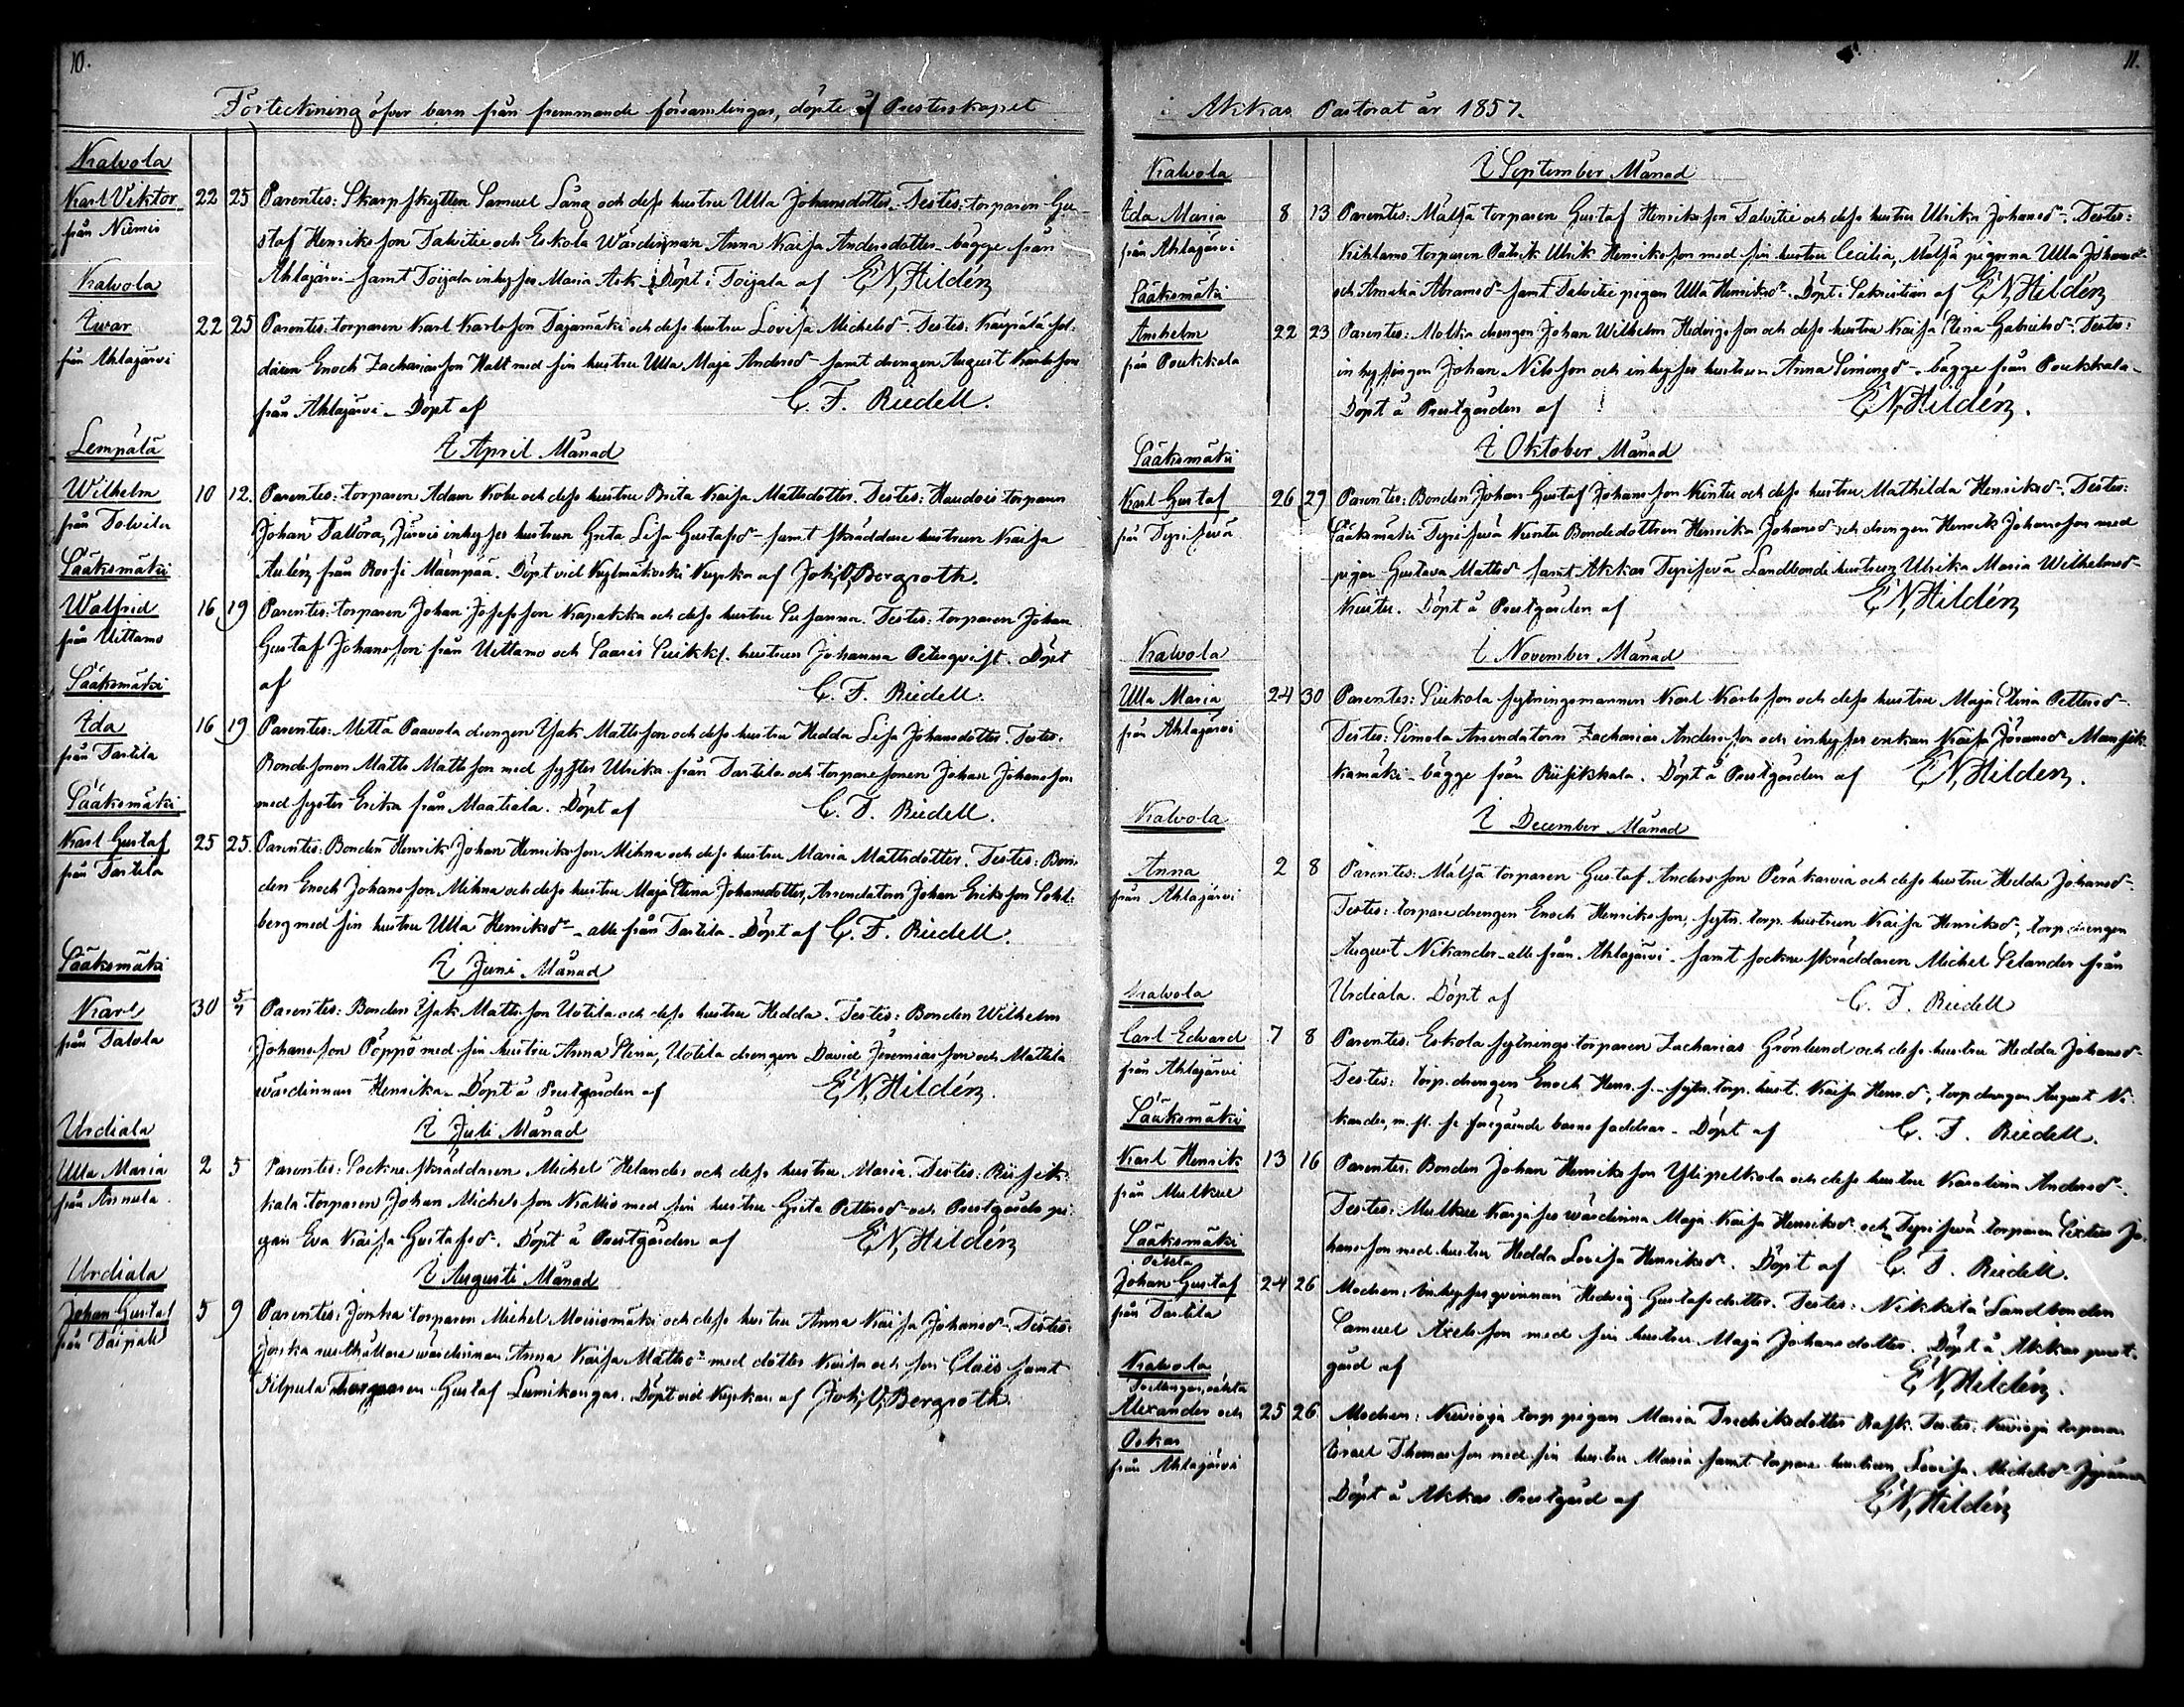 10.
Förteckning öfver barn från främmande församlingar, döpte af Presterskapet
Kalvola
Karl Viktor 22 25 Parentes: Skarpskytten Samuel Lång och dess hustru Ulla Johansdotter. Testes: torparen Gu-
från Niemis staf Henriksson Talvitie och Eskola Wärdinnan Anna Kaisa Andersdotter bägge från
Kalvola Ahlajärvi samt Toijala inhyses Maria Ask. Döpt i Toijala af E.N. Hildén
Iwar 22 25 Parentes: torparen Karl Karlsson Tajamäki och dess hustru Lovisa Michelsdr. Testes: Kurpälä sol-
från Ahlajärvi daten Enoch Zachariasson Halt med sin hustru Ulla Maja Andersdr samt drengen August Karlsson
från Ahlajärvi. Döpt af C. F. Riedell.
Lempälä I April Månad
Wilhelm 10 12. Parentes: torparen Adam Koke och dess hustru Brita Kaisa Mattsdotter. Testes: Haudois torparen
från Tolvila Johan Tallöra, Jurvis inhyses hustrun Greta Lisa Gustafsdr samt skräddare hustrun Kaisa
Sääksmäki Aulin från Rossi Mäenpää. Döpt vid Kylmäkoski Kyrka af Joh. V. Bergroth.
Walfrid 16 19 Parentes: torparen Johan Josefsson Kapakka och dess hustru Susanna. Testes: torparen Johan
från Uittamo Gustaf Johansson från Uittamo och Saaris hustrun Johanna Petersqvist. Döpt
Sääksmäki af C. F. Riedell.
Ida 16 19 Parentes: Mettä Paavola drengen Isak Mattsson och dess hustru Hedda Lisa Johansdotter. Testes:
från Tartila Bondesonen Matts Mattsson med syster Ulrika från Tartila och torparesonen Johan Johansson
Sääksmäki med syster Erika från Maatiala. Döpt af C. F. Riedell.
Karl Gustaf 25 25. Parentes: Bonden Henrik Johan Henriksson Mihna och dess hustru Maria Mattsdotter. Testes: Bon-
från Tartila den Enoch Johansson Mihna och dess hustru Maja Stina Johansdotter, Arrendatorn Johan Eriksson Sohl-
berg med sin hustru Ulla Henriksdr alla från Tartila. Döpt af C. F. Riedell.
Sääksmäki I Juni Månad
Karl 30 5/7 Parentes: Bonden Isak Mattsson Uotila och dess hustru Hedda. Testes: Bonden Wilhelm
från Talola Johansson Pöppö med sin hustru Anna Stina, Uotila drengen David Jeremiasson och Mattila
wärdinnan Henrika. Döpt å Prestgården af E.N. Hildén.
Urdiala I Juli Månad
Ulla Maria 2 5 Parentes: Sockneskräddaren Michel Helander och dess hustru Maria. Testes: Riisik-
från Annula kala torparen Johan Michelsson Krattis med sin hustru Greta Pettersdr och Prestgårds pi-
gan Eva Kaisa Gustafsdr. Döpt å Prestgården af E.N. Hildén
Urdiala I Augusti Månad
Johan Gustaf 5 9 Parentes: Jonka torparen Michel Moisiomäki och dess hustru Anna Kaisa Johansdr. Testes:
från Taipale Jonka rusthållare wärdinnan Anna Kaisa Mattsdr med dotter Kaisa och son Claës samt
Tilpula Torparen Gustaf Lumikangas. Döpt vid Kyrkan af Joh. V. Bergroth.
11.
i Akkas Pastorat år 1857.
Kalvola I September Månad
Ida Maria 8 13 Parentes: Mälsä torparen Gustaf Henriksson Talvitie och dess hustru Ulrika Johansdr. Testes:
från Ahlajärvi Kihlamo torparen Patrik Ulrik Henriksson med sin hustru Cecilia, Mälsä pigorna Ulla Johansdr
Sääksmäki och Amalia Abramsdr samt Talvitie pigan Ulla Henriksdr. Döpt i Sakristian af E.N. Hildén
Anshelm 22 23 Parentes: Molkka drengen Johan Wilhelm Hedvigsson och dess hustru Kaisa Stina Gabrielsdr. Testes:
från Poukkala inhysingen Johan Nilsson och inhyses hustrun Anna Simonsdr. bägge från Poukkala.
Döpt å Prestgården af E.N. Hildén.
Sääksmäki I Oktober Månad
Karl Gustaf 26 29 Parentes: Bonden Johan Gustaf Johansson Kuntu och dess hustru Mathilda Henriksdr. Testes:
från Tyrisevä Sääksmäki Tyrisevä Kuntu Bondedottren Henrika Johansdr och drengen Henrik Johansson med
pigan Gustava Mattsdr samt Akkas Tyrisevä Landbonde hustrun Ulrika Maria Wilhelmsdr
Kuntu. Döpt å Prestgården af E.N. Hildén
Kalvola I November Månad
Ulla Maria 24 30 Parentes: Siukola sytningsmannen Karl Karlsson och dess hustru Maja Stina Pettersdr.
från Ahlajärvi Testes: Simola Arrendatorn Zacharias Andersson och inhyses enkan Kaisa Göransdr Mansik-
kamäki bägge från Riisikkala. Döpt å Prestgården af E.N. Hildén.
Kalvola I December Månad
Anna 2 8 Parentes: Mälsä torparen Gustaf Andersson Peräkorvia och dess hustru Hedda Johansdr.
från Ahlajärvi Testes: torparedrengen Enoch Henriksson, sytn. torp. hustrun Kaisa Henriksdr, torp. drengen
August Nikander alla från Ahlajärvi samt sockneskräddaren Michel Selander från
Kalvola Urdiala. Döpt af C. F. Riedell
Carl Edvard 7 8 Parentes: Eskola sytnings torparen Zacharias Grönlund och dess hustru Hedda Johansdr
från Ahlajärvi Testes: torp. drengen Enoch Henr. s. sytn. torp. hust. Kaisa Henr.dr, torp. drengen August Ni-
Sääksmäki kander, m. fl. se föregående barns faddrar. Döpt af C. F. Riedell.
Karl Henrik 13 16 Parentes: Bonden Johan Henriksson Ylipelkola och dess hustru Karolina Andersdr.
från Mulkue Testes: Mulkue wärdinna Maja Kaisa Henriksdr och Tyrisevä torparen Sixtus Jo-
Sääksmäki hansson med hustru Hedda Lovisa Henriksdr. Döpt af C. F. Riedell.
oäkta
Johan Gustaf 24 26 Modren: Inhysesqvinnan Hedvig Gustafsdotter. Testes: Nikkilä Landbonden
från Tartila Samuel Axelsson med sin hustru Maja Johansdotter. Döpt å Akkas prest-
Kalvola gård af E.N. Hildén.
Tvillingar, oäkta
Alexander och 25 26 Modren: Kurioja torp pigan Maria Fredriksdotter Rask. Testes: Kurioja torparen
Oskar Israel Thomasson med sin hustru Maria samt torpare hustrun Lovisa Michelsdr
från Ahlajärvi Döpt å Akkas Prestgård af E.N. Hildén